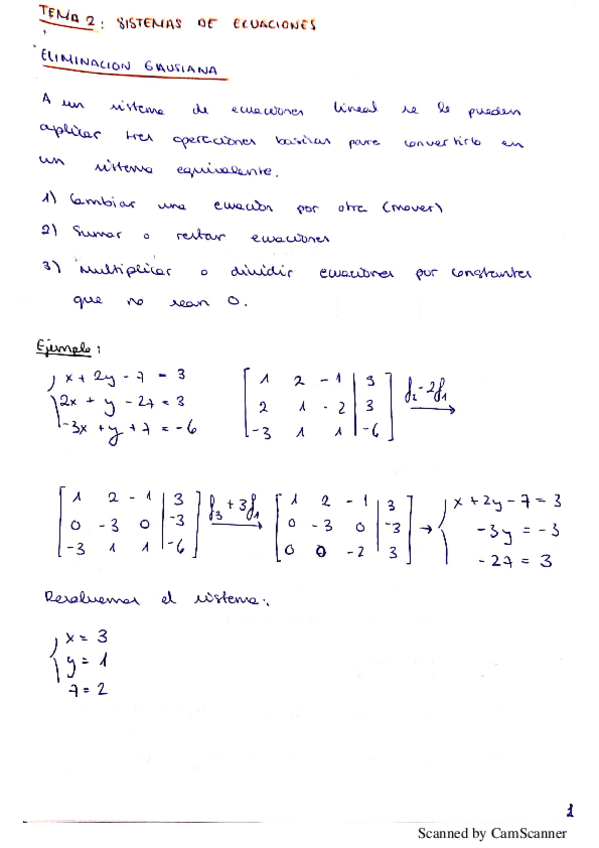 TEMA 2: SISTEMAS DE ECUACIONES
ELIMINACION GAUSIANA
A un sistema de ecuaciones lineal se le pueden
aplicar tres operaciones basicas para convertirlo en
un sistema equivalente.
1) Cambiar una ecuacion por otra (mover)
2) Sumar o restar ecuaciones
3) multiplicar o dividir ecuaciones por constantes
que no sean 0.
Ejemplo:
x + 2y - z = 3
2x + y - 2z = 3
-3x + y + z = -6
1 2 -1 | 3
2 1 -2 | 3
-3 1 1 | -6
f2 - 2f1
1 2 -1 | 3
0 -3 0 | -3
-3 1 1 | -6
f3 + 3f1
1 2 -1 | 3
0 -3 0 | -3
0 0 -2 | 3
→
x + 2y - z = 3
-3y = -3
-2z = 3
Resolvemos el sistema:
x = 3
y = 1
z = 2
1
Scanned by CamScanner